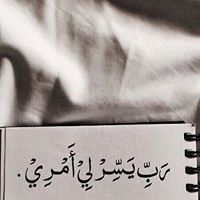 رَبِّ يَسِّرْ لِيْ أَمْرِيْ .